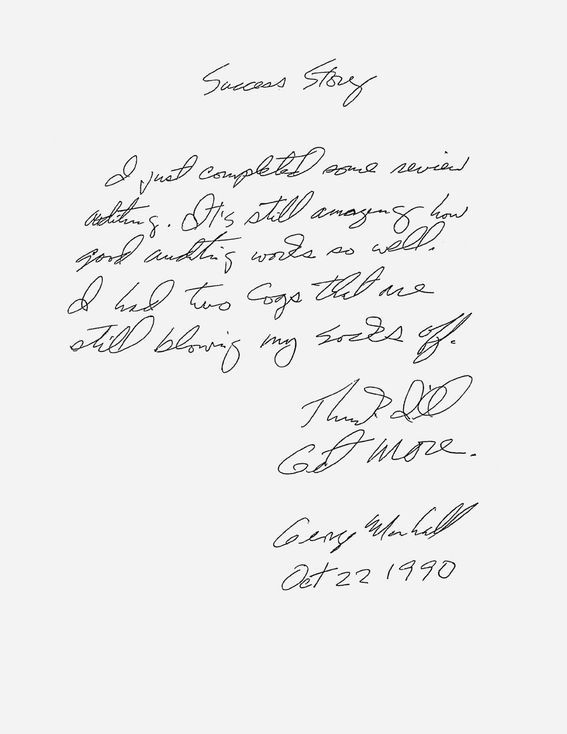 Success Story
I just completed some review
auditing. It's still amazing how
good auditing works so well.
I had two Cogs that are
still blowing my socks off.
Think I'll
Get more.
George Marshall
Oct 22 1990